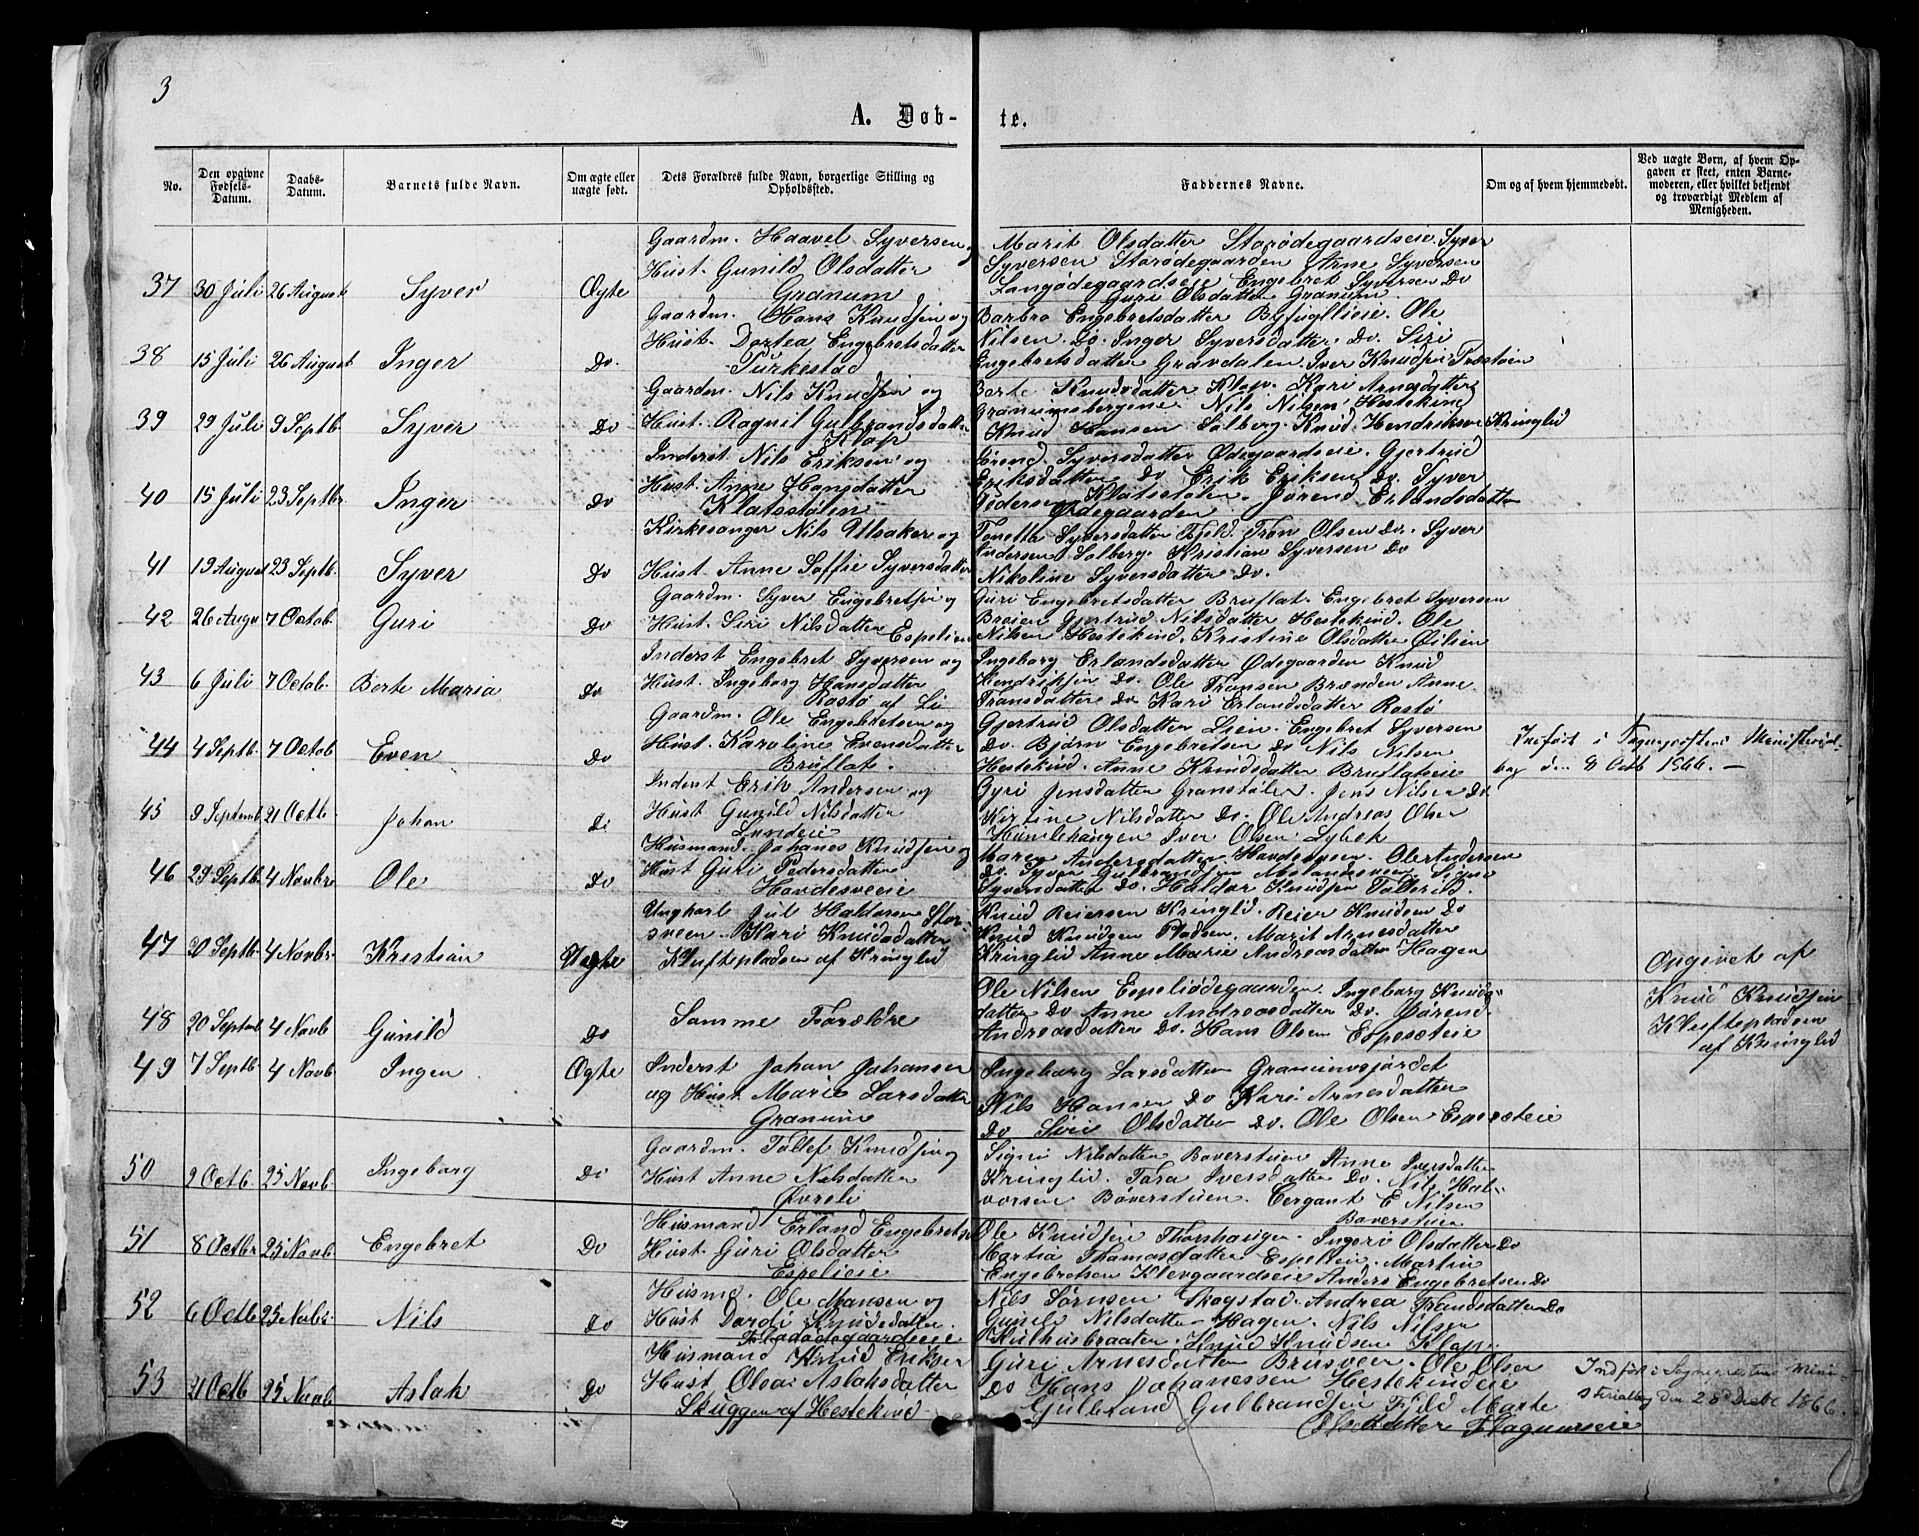 3
A. Døb-
te.
No.
Den opgivne Fødsels-Datum.
Daabs-Datum.
Barnets fulde Navn.
Om ægte eller uægte født.
Dets Forældres fulde Navn, borgerlige Stilling og Opholdssted.
Faddernes Navne.
Om og af hvem hjemmedøbt.
Ved uægte Børn, af hvem Opgaven er skeet, enten Barnemoderen, eller hvilket bekjendt og troværdigt Medlem af Menigheden.
Gaardm. Haavel Syversen og
Hust. Gunild Olsdatter
37 30 Juli 26 August Syver Ægte Granum
Marit Olsdatter Storødegaardseie Syver
Syversen Storødegaarden Anne Syversen
Langødegaardseie Engebret Syversen Do
Guri Olsdatter Granum
Gaardm. Hans Knudsen og
Hust. Dortea Engebretsdatter
38 15 Juli 26 August Inger Do. Turkestad
Barbro Engebretsdatter Byfugllieie. Ole
Nilsen Do. Inger Syversdatter. Do. Siri
Engebretsdatter Gravdalen. Iver Knudsen
Gaardm. Nils Knudsen og
39 29 Juli 9 Septb. Syver Do Hust. Ragnil Gulbrandsdatter
Klop
Berte Knudsdatter Klop. Kari Arnesdatter
Nils Nilsen Hestekind
Knud Hansen Solberg. Knud Hendriksen Kringlid
Inderst Nils Eriksen og
40 15 Juli 23 Septbr Inger Do Hust. Anne Hansdatter
Klatsstølen
Jørend Syversdatter Ødegaardseie. Gjertrud
Eriksdatter Do Erik Eriksen Do. Syver
Pedersen Klatsstølen. Jørend Erlandsdatter
Ødegaarden
Kirkesanger Nils Ulsaker og
41 19 August 23 Septb. Syver Do Hust. Anne Soffie Syversdatter
Tonetta Syversdatter Fjeld. Tron Olsen Do. Syver
Andersen Solberg. Kristian Syversen Do
Nikoline Syversdatter Do.
Gaardm. Syver Engebretsen og
42 26 Augu 7 Octob. Guri Do Hust. Siri Nilsdatter Espelien
Guri Engebretsdatter Bruflat. Engebret Syversen
Breien Gjertrud Nilsdatter Hestekind. Ole
Nilsen Hestekind. Kristine Olsdatter
Inderst Engebret Syversen og
43 6 Juli 7 Octob. Berte Maria Do Hust. Ingeborg Hansdatter
Rostø af Li
Ingeborg Erlandsdatter Ødegaarden Knud
Hendriksen Do. Ole Transen Brænden Anne
Transdatter Do Kari Erlandsdatter Rostø
Gaardm. Ole Engebretsen og
44 4 Septb. 7 Octob Even Do Hust. Karoline Evensdatter
Bruflat.
Gjertrud Olsdatter Lien. Engebret Syversen
Do. Bjørn Engebretsen Do Nils Nilsen
Hestekind. Anne Knudsdatter Bruflateie
Indført i Sognepræstens Ministerial-
bog den 8 Octb 1866. -
Inderst Erik Andersen og
45 9 Septemb. 21 Octb Johan Do Hust Gunild Nilsdatter
Lundeie
Gyri Jensdatter Granstølen. Jens Nilsen Do
Kirtine Nilsdatter Do. Ole Andreas Olsen
Humlehaugen Iver Olsen Lybek
Husmand. Johanes Knudsen og
46 29 Septb. 4 Novbr Ole Do Hust Guri Pedersdatter
Havdesveeie
Maren Andersdatter Havdesveen. Ole Andersen
Do. Syver Gulbrandsen Signe
Syversdatter Do. Haldor Knudsen Tollerud.
Ungkarl Jul Haldorsen Stor-
sveen. Kari Knudsdatter
47 20 Septb. 4 Novbr Kristian Uægte Kluftepladsen af Kringlid
Knud Reiersen Kringlid. Reier Knudsen Do
Knud Knudsen Pladsen. Marit Arnesdatter
Kringlid Anne Marie Andreasdatter Hagen
Opgivet af
Knud Knudsen
Kluftepladsen
af Kringlid
48 20 Septemb. 4 Novb Gunild Do Samme Forældre
Ole Nilsen Espeliødegaarden. Ingeborg Knuds-
datter Do Anne Andreasdatter Do. Jørend
Andreasdatter Do. Hans Olsen Espesæteie
49 7 Septb 4 Novb Inger Ægte Inderst Johan Johansen
og Hust. Marie Larsdatter
Granum
Ingeborg Larsdatter Granumsjordet
Nils Hansen Do Kari Arnesdatter
Do Siri Olsdatter Do. Ole Olsen Espesæteie
Gaardm. Tollef Knudsen og
50 2 Octb. 25 Novb Ingeborg Do Hust Anne Nilsdatter
Signe Nilsdatter Bøverstuen Anne Iversdatter
Kringlid. Tora Iversdatter Do. Nils Hal-
vorsen Bøverstuen. Cergant E Nilsen
Bøverstuen
51 8 Octbr 25 Novb Engebret Do Husmand Erland Engebrets
Hust. Guri Olsdatter
Espelieie
Ole Knudsen Thorshaugen. Ingeri Olsdatter Do
Martia Thomasdatter Espelieie. Martin
Engebretsen Klevgaardseie Anders Engebretsen Do
Husmd. Ole Hansen og
52 6 Octb 25 Novbr. Nils Do Hust Dordi Knudsdatter.
Nils Sørnsen Skogstad. Andrea Fransdatter Do
Gunild Nilsdatter Hagen. Nils Nilsen
Kulhusbraaten. Knud Knudsen Klop.
Husmand Knud Eriksen
53 21 Octb 25 Novb Aslak Do Hust Olea Aslaksdatter
Skuggen af Hestekind
Guri Arnesdatter Brusveen. Ole Olsen
Do Hans Johanessen Hestekindeie
Gulbrand Gulbrandsen Fjeld Marte
Olsdatter Hagumseie
Indført i Sognepræstens Mini-
sterialbog den 28 Decbr 1866.